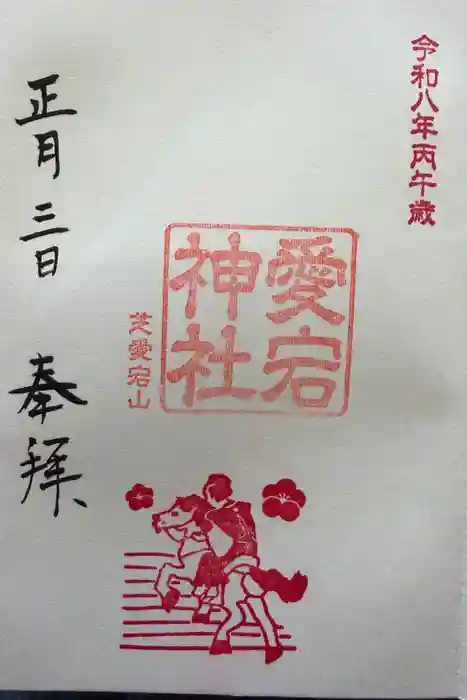 令和八年丙午歳
愛宕
神社
芝愛宕山
正月三日
奉拝